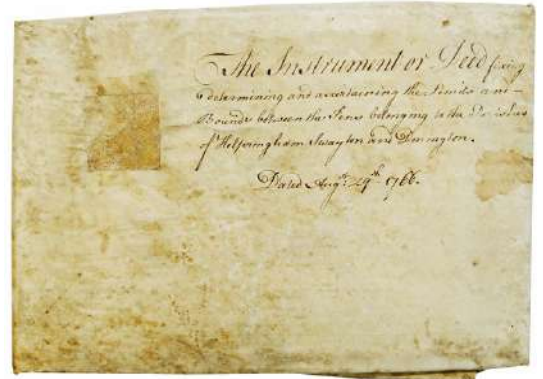 The Instrument or Deed fixing
determining and ascertaining the Limits and
Bounds between the Fens belonging to the Parishes
of Helpringham Swayton and Donington.
Dated Augst. 29th. 1766.